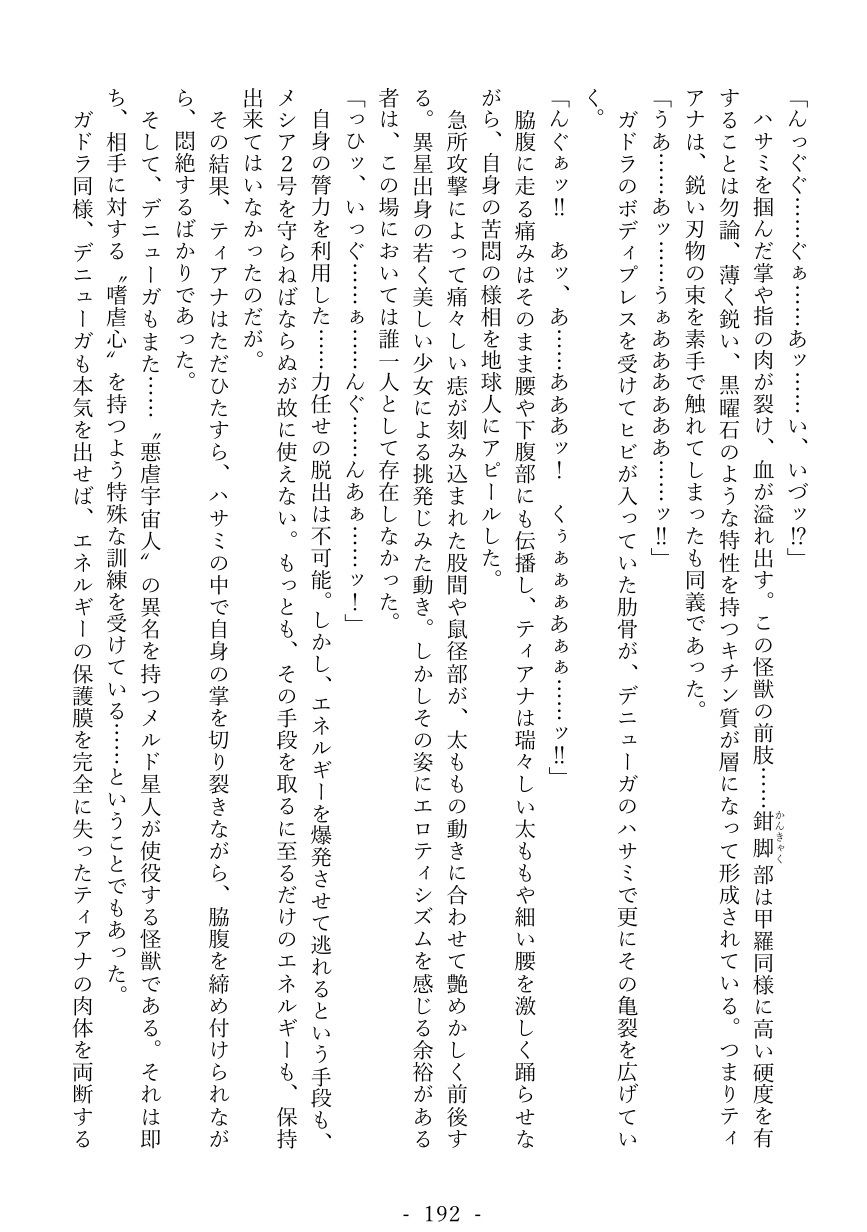 「んっぐぐ……ぐぁ……あッ……い、いづッ!?」
ハサミを掴んだ掌や指の肉が裂け、血が溢れ出す。この怪獣の前肢……鉗脚部は甲羅同様に高い硬度を有
かんきゃく
することは勿論、薄く鋭い、黒曜石のような特性を持つキチン質が層になって形成されている。つまりティ
アナは、鋭い刃物の束を素手で触れてしまったも同義であった。
「うあ……あッ……うぁああああああ……ッ!!」
ガドラのボディプレスを受けてヒビが入っていた肋骨が、デニューガのハサミで更にその亀裂を広げてい
く。
「んぐぁッ!!　あッ、あ……あああッ！　くぅぁぁぁあぁぁ……ッ!!」
脇腹に走る痛みはそのまま腰や下腹部にも伝播し、ティアナは瑞々しい太ももや細い腰を激しく踊らせな
がら、自身の苦悶の様相を地球人にアピールした。
急所攻撃によって痛々しい痣が刻み込まれた股間や鼠径部が、太ももの動きに合わせて艶めかしく前後す
る。異星出身の若く美しい少女による挑発じみた動き。しかしその姿にエロティシズムを感じる余裕がある
者は、この場においては誰一人として存在しなかった。
「っひッ、いっぐ……ぁ……んぐ……んあぁ……ッ！」
自身の膂力を利用した……力任せの脱出は不可能。しかし、エネルギーを爆発させて逃れるという手段も、
メシア２号を守らねばならぬが故に使えない。もっとも、その手段を取るに至るだけのエネルギーも、保持
出来てはいなかったのだが。
その結果、ティアナはただひたすら、ハサミの中で自身の掌を切り裂きながら、脇腹を締め付けられなが
ら、悶絶するばかりであった。
そして、デニューガもまた……〝悪虐宇宙人〟の異名を持つメルド星人が使役する怪獣である。それは即
ち、相手に対する〝嗜虐心〟を持つよう特殊な訓練を受けている……ということでもあった。
ガドラ同様、デニューガも本気を出せば、エネルギーの保護膜を完全に失ったティアナの肉体を両断する
- 192 -